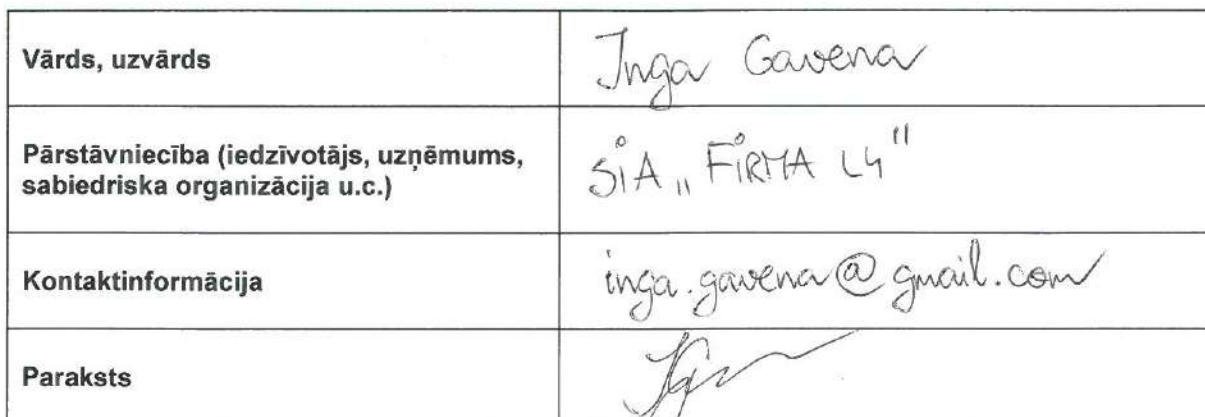 Vārds, uzvārds
Inga Gavena
Pārstāvniecība (iedzīvotājs, uzņēmums,
sabiedriska organizācija u.c.)
SIA „FIRMA L4"
Kontaktinformācija
inga.gavena@gmail.com
Paraksts